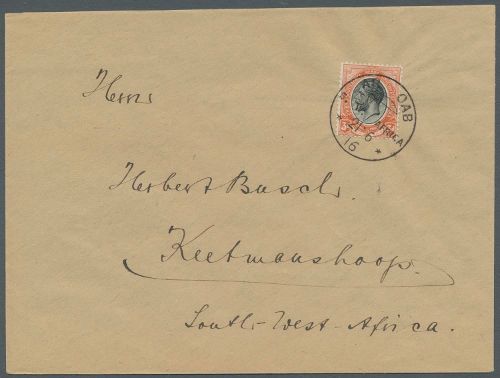 Herrn
Herbert Busch.
Keetmanshoop.
South-West-Africa.
OAB
AFRICA
21 6
16